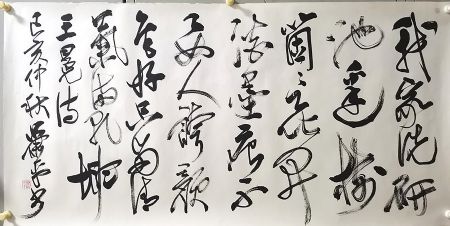 我家洗研
池邊樹
箇〻花開
淡墨痕不
要人誇顏
色好只留清
氣滿乾坤
王冕诗
己亥仲秋 书